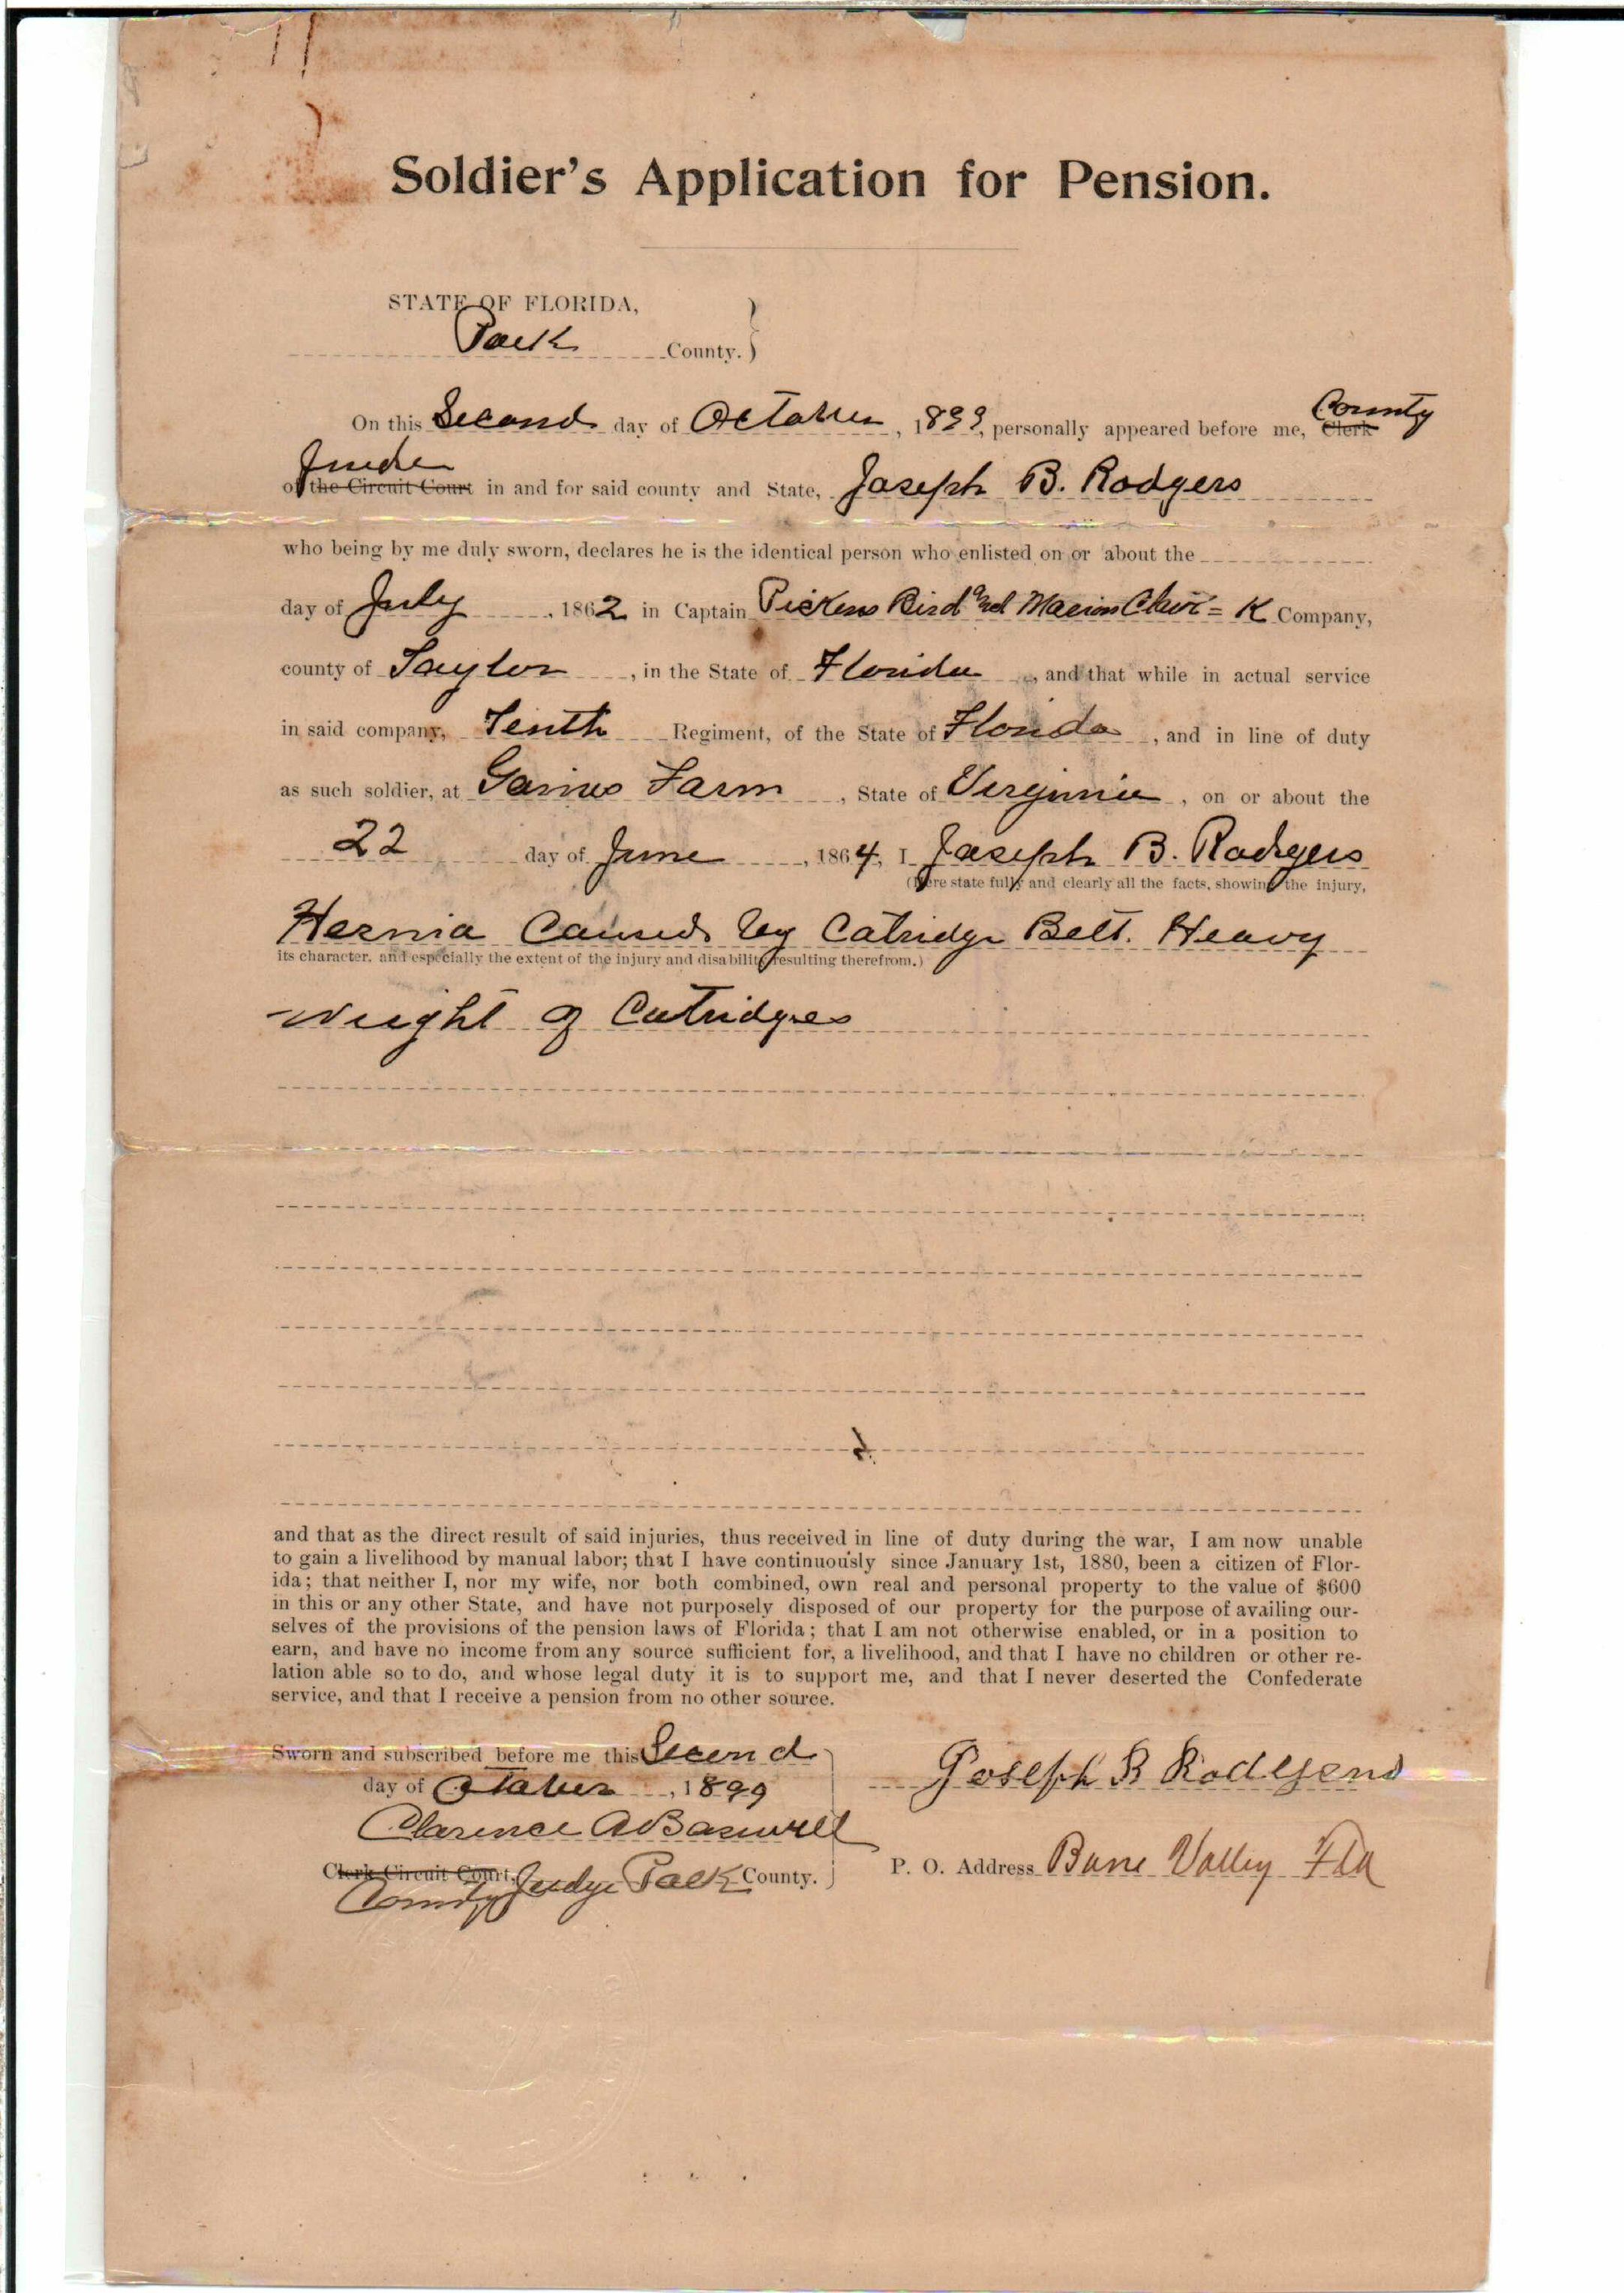 Soldier's Application for Pension.
STATE OF FLORIDA,
Polk County.
On this Second day of October, 1899, personally appeared before me, Clerk County
Judge
of the Circuit Court in and for said county and State, Joseph B. Rodgers
who being by me duly sworn, declares he is the identical person who enlisted on or about the
day of July, 1862 in Captain Pickens Bird and Marion Clair = K Company,
county of Taylor, in the State of Florida, and that while in actual service
in said company, Tenth Regiment, of the State of Florida, and in line of duty
as such soldier, at Gaines Farm, State of Virginia, on or about the
22 day of June, 1864, I Joseph B. Rodgers
(Here state fully and clearly all the facts, showing the injury,
Hernia Caused by Catridge Belt. Heavy
its character, and especially the extent of the injury and disability resulting therefrom.)
Weight of Catridges
and that as the direct result of said injuries, thus received in line of duty during the war, I am now unable
to gain a livelihood by manual labor; that I have continuously since January 1st, 1880, been a citizen of Flor-
ida; that neither I, nor my wife, nor both combined, own real and personal property to the value of $600
in this or any other State, and have not purposely disposed of our property for the purpose of availing our-
selves of the provisions of the pension laws of Florida; that I am not otherwise enabled, or in a position to
earn, and have no income from any source sufficient for, a livelihood, and that I have no children or other re-
lation able so to do, and whose legal duty it is to support me, and that I never deserted the Confederate
service, and that I receive a pension from no other source.
Sworn and subscribed before me this Second
day of October, 1899
Joseph B Rodgers
Clarence A Boswell
Clerk Circuit Court, County Judge Polk County.
P. O. Address Bone Valley Fla